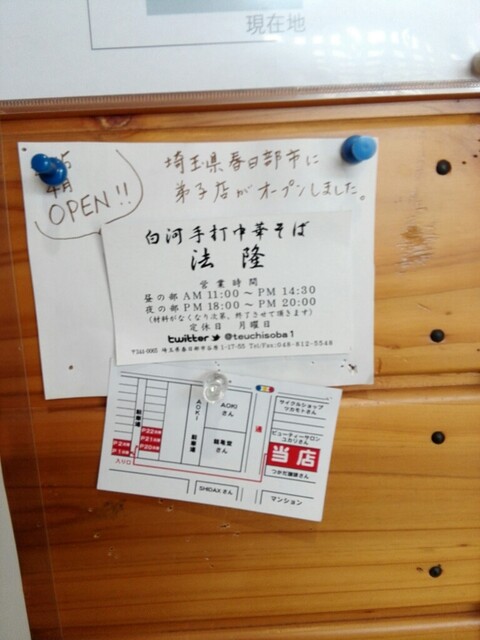 現在地
4月
OPEN!!
埼玉県春日部市に
弟子店がオープンしました。
白河手打中華そば
法隆
営業時間
昼の部 AM 11:00 ～ PM 14:30
夜の部 PM 18:00 ～ PM 20:00
(材料がなくなり次第、終了させて頂きます)
定休日 月曜日
twitter @teuchisoba1
1-17-55 Tel/Fax:048-812-5548
AOKI
駐車場
AOKI
さん
さん
駐車場
P22番
P21番
P20番
P2番
P1番
入り口
通
サイクルショップ
ツカモトさん
ビューティーサロン
ユカリさん
当店
つかだ
SHIDAXさん
マンション